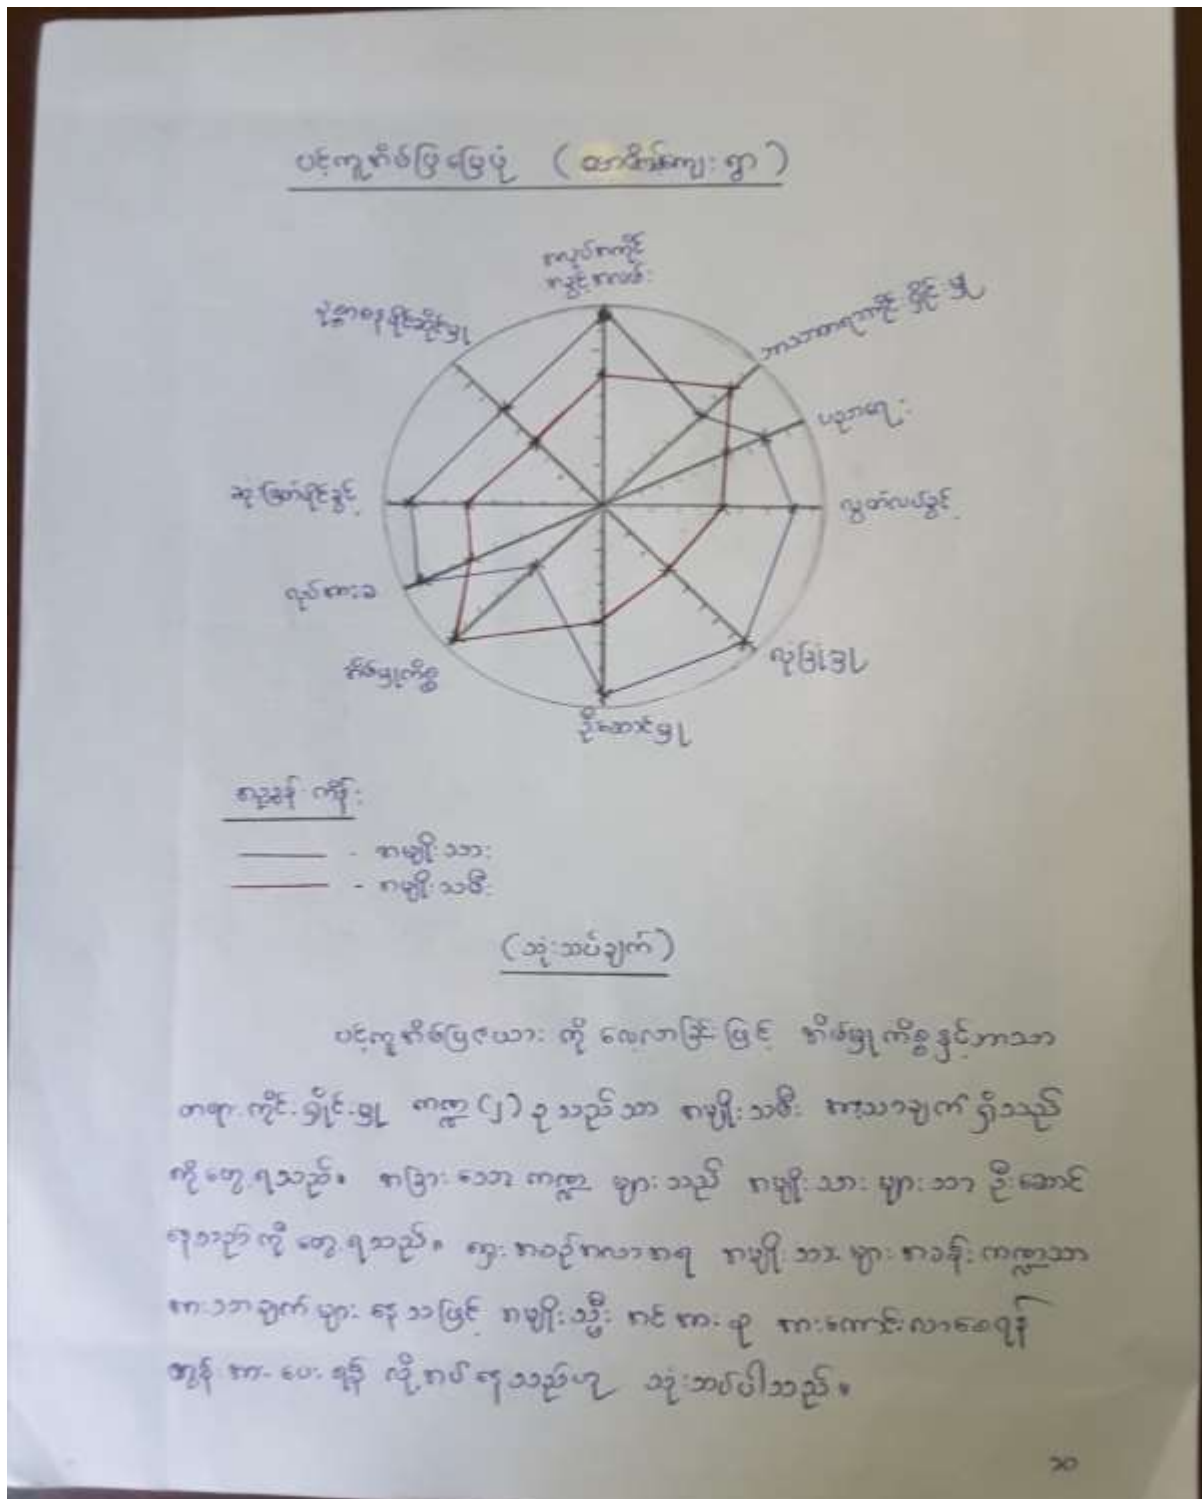 ပင့်ကူအိမ်ပြမြေပုံ (ကျေးရွာ)
အလုပ်အကိုင်
အခွင့်အလမ်း
ဘာသာတရားကိုင်းရှိုင်းမှု
ပညာရေး
လွတ်လပ်ခွင့်
လုံခြုံမှု
ဦးဆောင်မှု
အိမ်မှုကိစ္စ
လုပ်အားခ
ဆုံးဖြတ်ပိုင်ခွင့်
ပစ္စည်းပိုင်ဆိုင်မှု
အညွှန်းကိန်း
- အမျိုးသား
- အမျိုးသမီး
(သုံးသပ်ချက်)
ပင့်ကူအိမ်ပြဇယားကို လေ့လာခြင်းဖြင့် အိမ်မှုကိစ္စနှင့်ဘာသာ
တရားကိုင်းရှိုင်းမှု ကဏ္ဍ (၂) ခုသည်သာ အမျိုးသမီး အားသာချက်ရှိသည်
ကိုတွေ့ရသည်။ အခြားသော ကဏ္ဍများသည် အမျိုးသားများသာ ဦးဆောင်
နေသည်ကို တွေ့ရသည်။ ရှေးအစဉ်အလာအရ အမျိုးသားများအခန်းကဏ္ဍသာ
အားသာချက်များနေသဖြင့် အမျိုးသ္မီးအင်အားစု အားကောင်းလာစေရန်
တွန်းအားပေးရန် လိုအပ်နေသည်ဟု သုံးသပ်ပါသည်။
၁၀